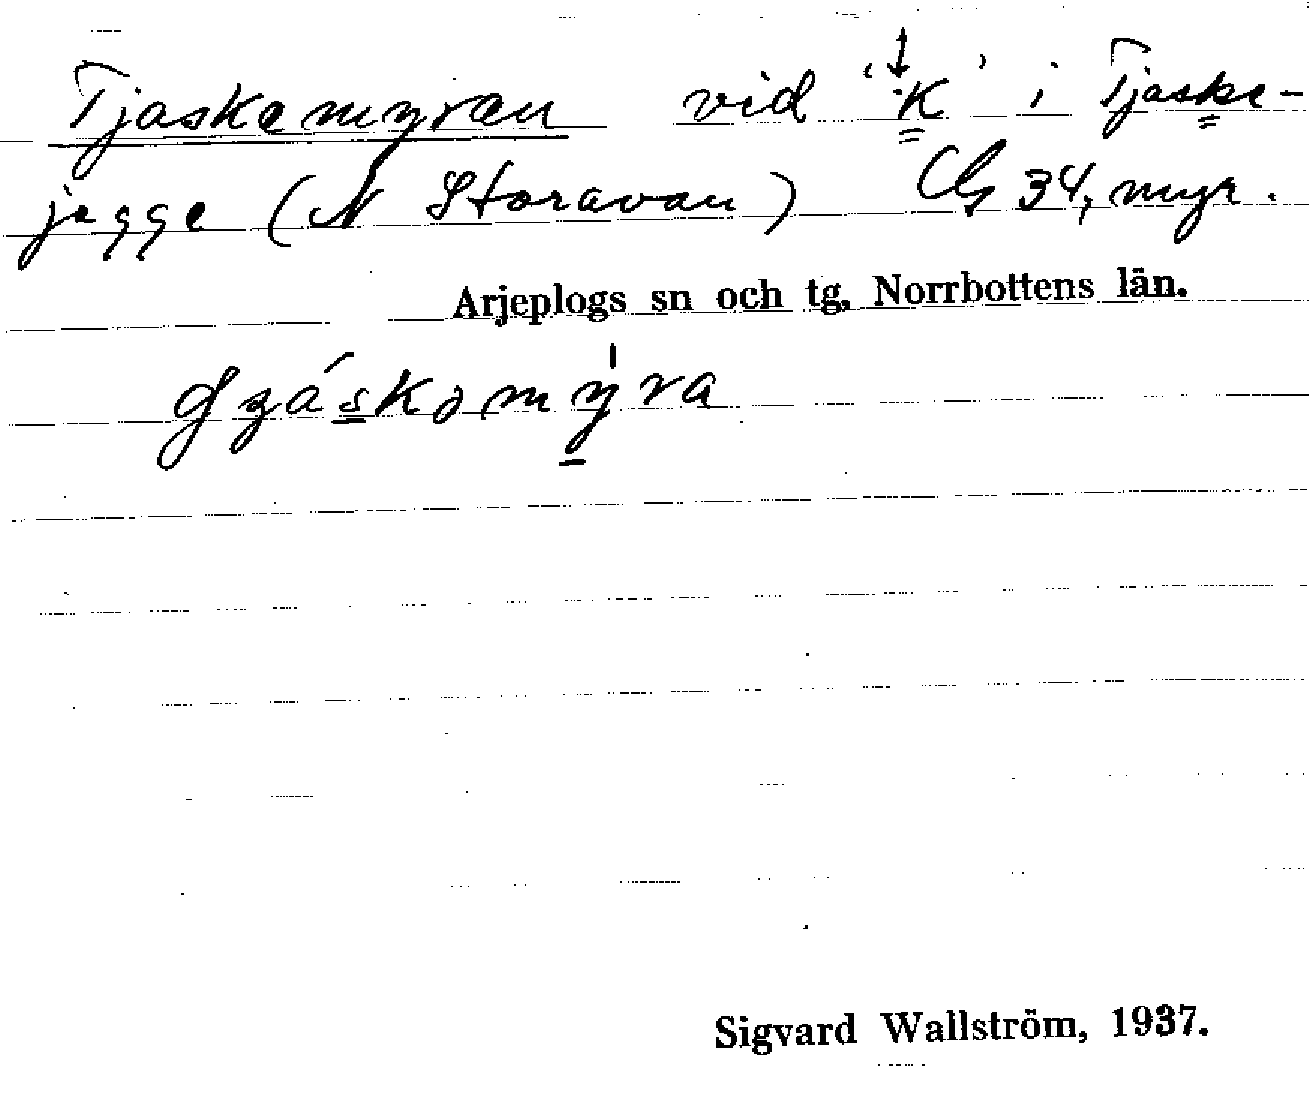 Tjaskemyren vid ‘K’ i Tjaske-
jegge (N Storavan) Cb 34, myr.
Arjeplogs sn och tg, Norrbottens län.
Sigvard Wallström, 1937.